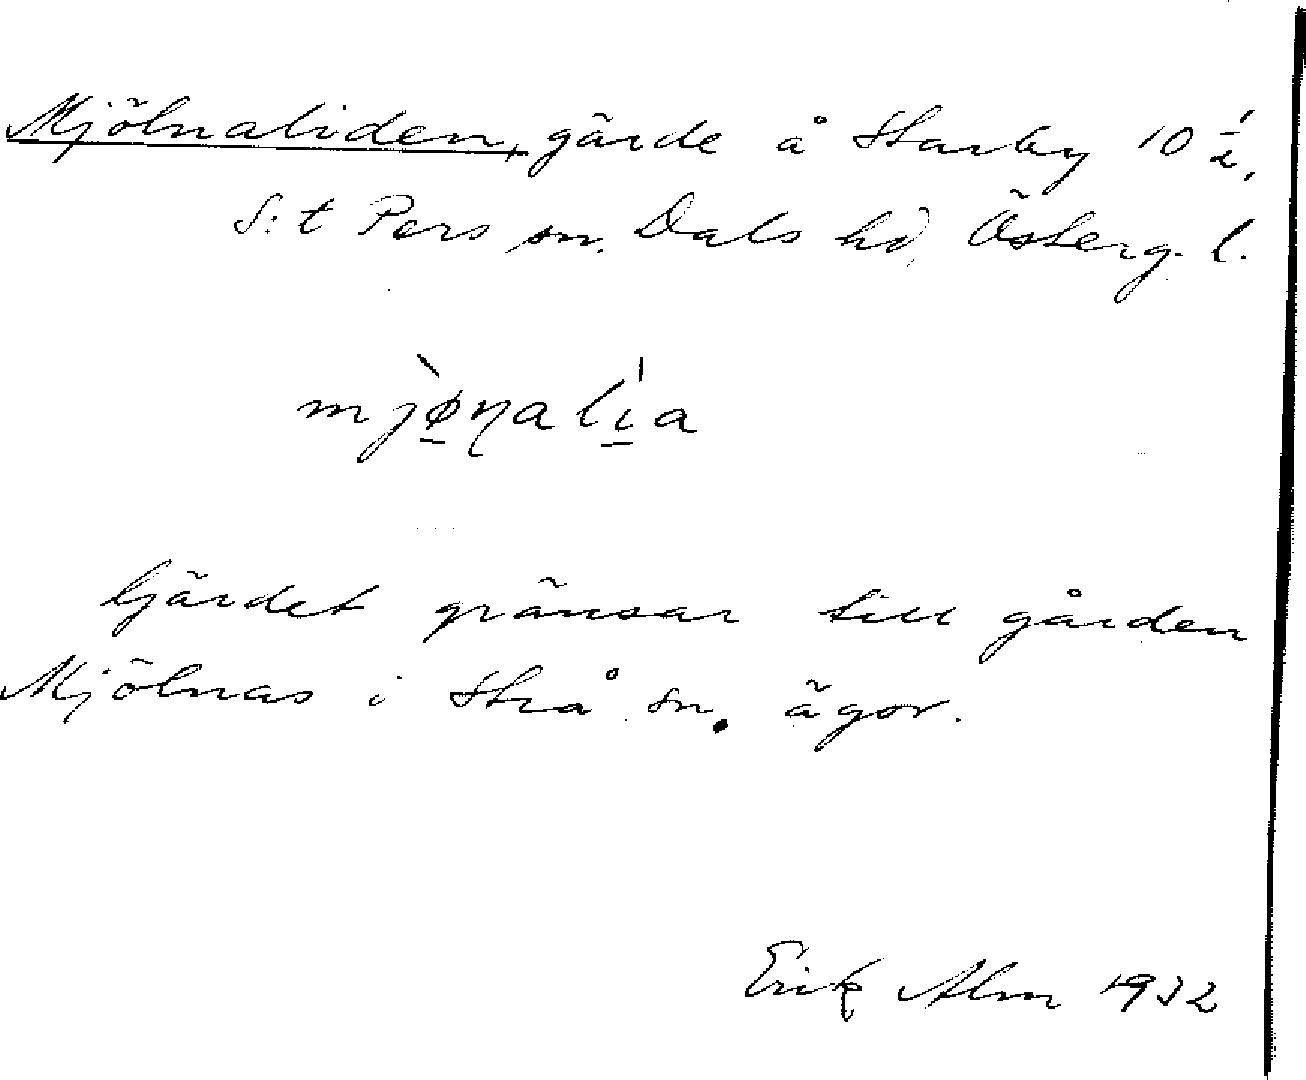 Mjölnaliden, gärde å Starby 10 ½,
S:t Pers sn. Dals hd, Österg. l.
mjø̱̀ṇalı̱́a
Gärdet gränsar till gården
Mjölnas i Strå sn. ägor.
Erik Alm 1932